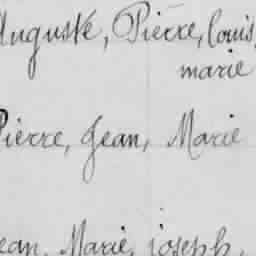 Auguste, Pierre, louis,
marie
Pierre, Jean, Marie
Jean, Marie, joseph,